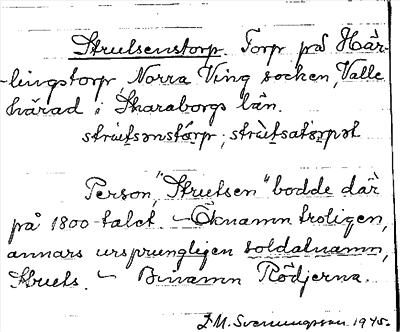 Strutsenstorp. Torp på Här-
-lingstorp, Norra Ving socken, Valle
härad i Skaraborgs län.
strù̀tsənstórp, strù̀tsatorpət
Person, "Strutsen" bodde där
på 1800-talet. - Öknamn troligen,
annars ursprungligen soldatnamn,
Struts. - Binamn Rödjorna.
L.M. Svenungsson 1945.